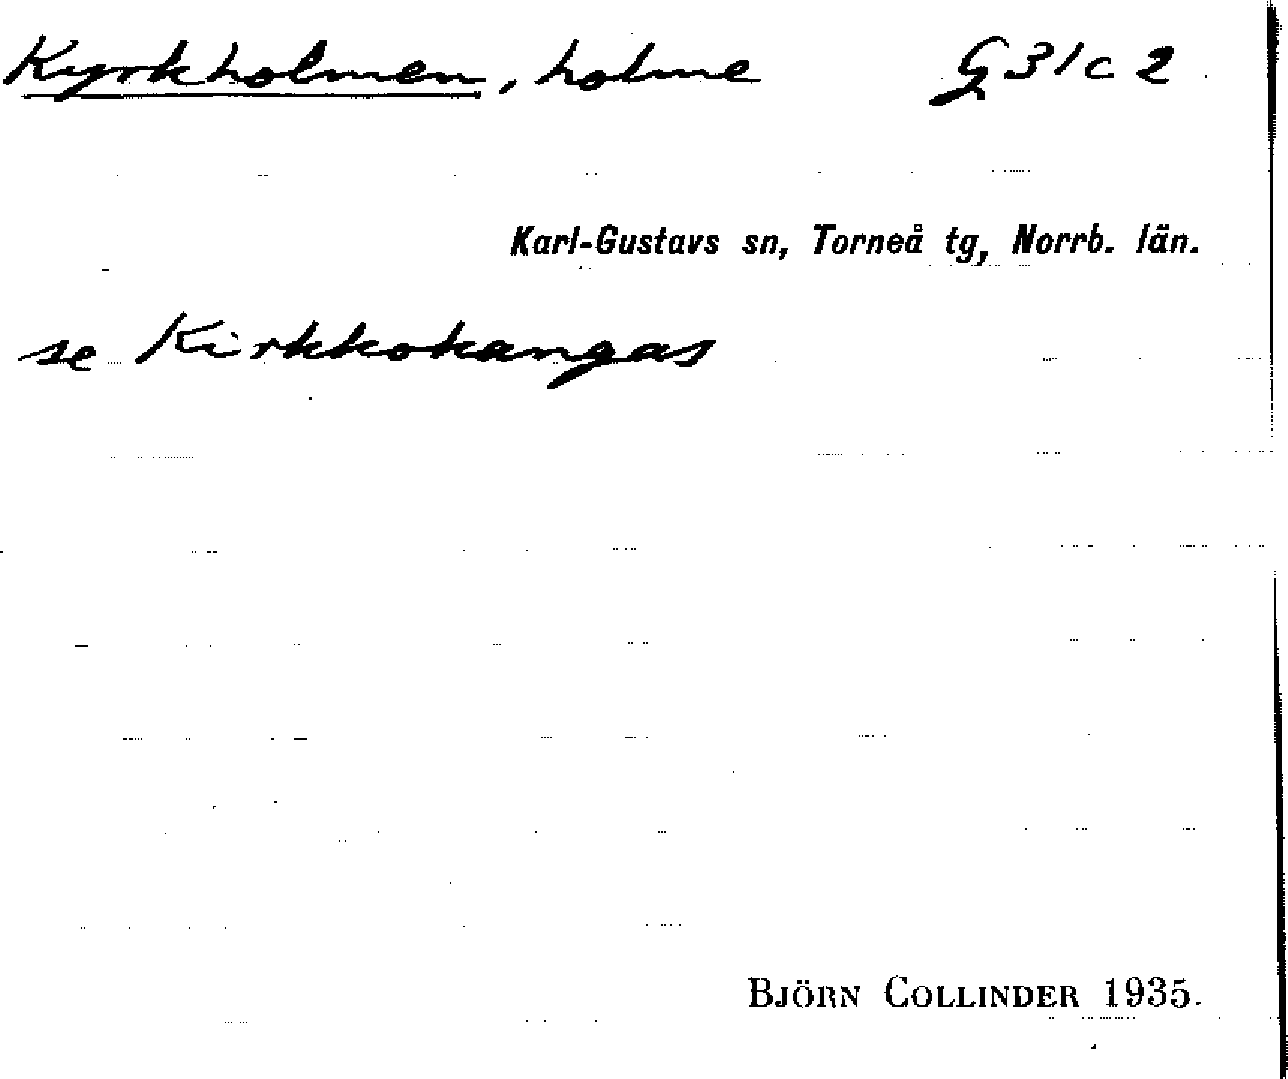 Kyrkholmen, holme G 31 c 2
Karl-Gustavs sn, Torneå tg, Norrb. län.
se Kirkkokangas
BJÖRN COLLINDER 1935.